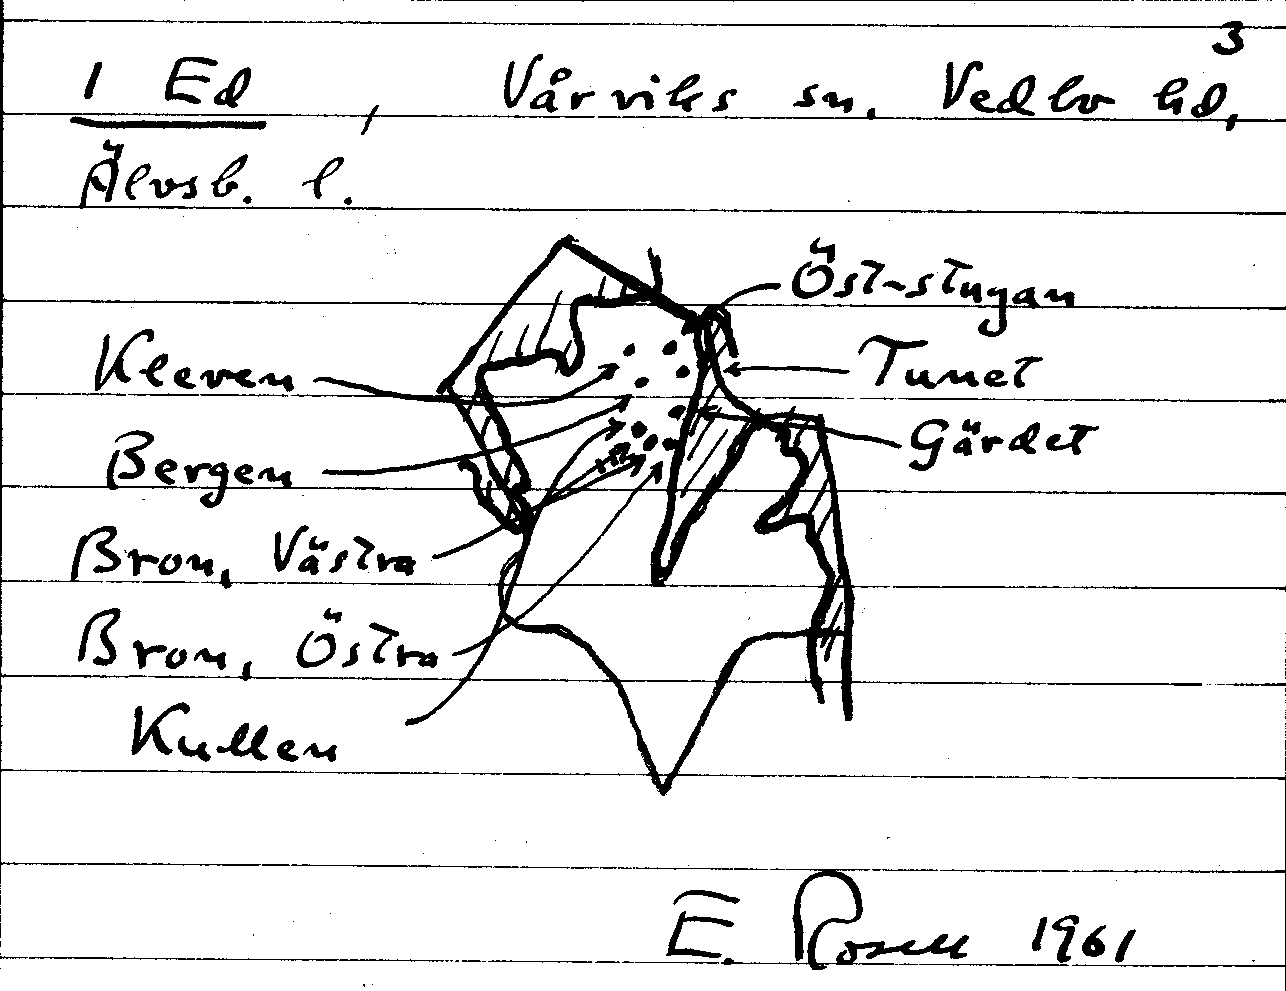 3
1 Ed, Vårviks sn. Vedbo hd,
Älvsb. l.
Öst-stugan
Kleven
Tunet
Gärdet
Bergen
Bron, Västra
Bron, Östra
Kullen
E. Rosell 1961